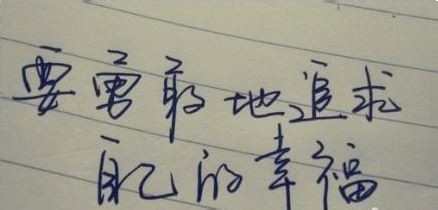 要勇敢地追求
自己的幸福